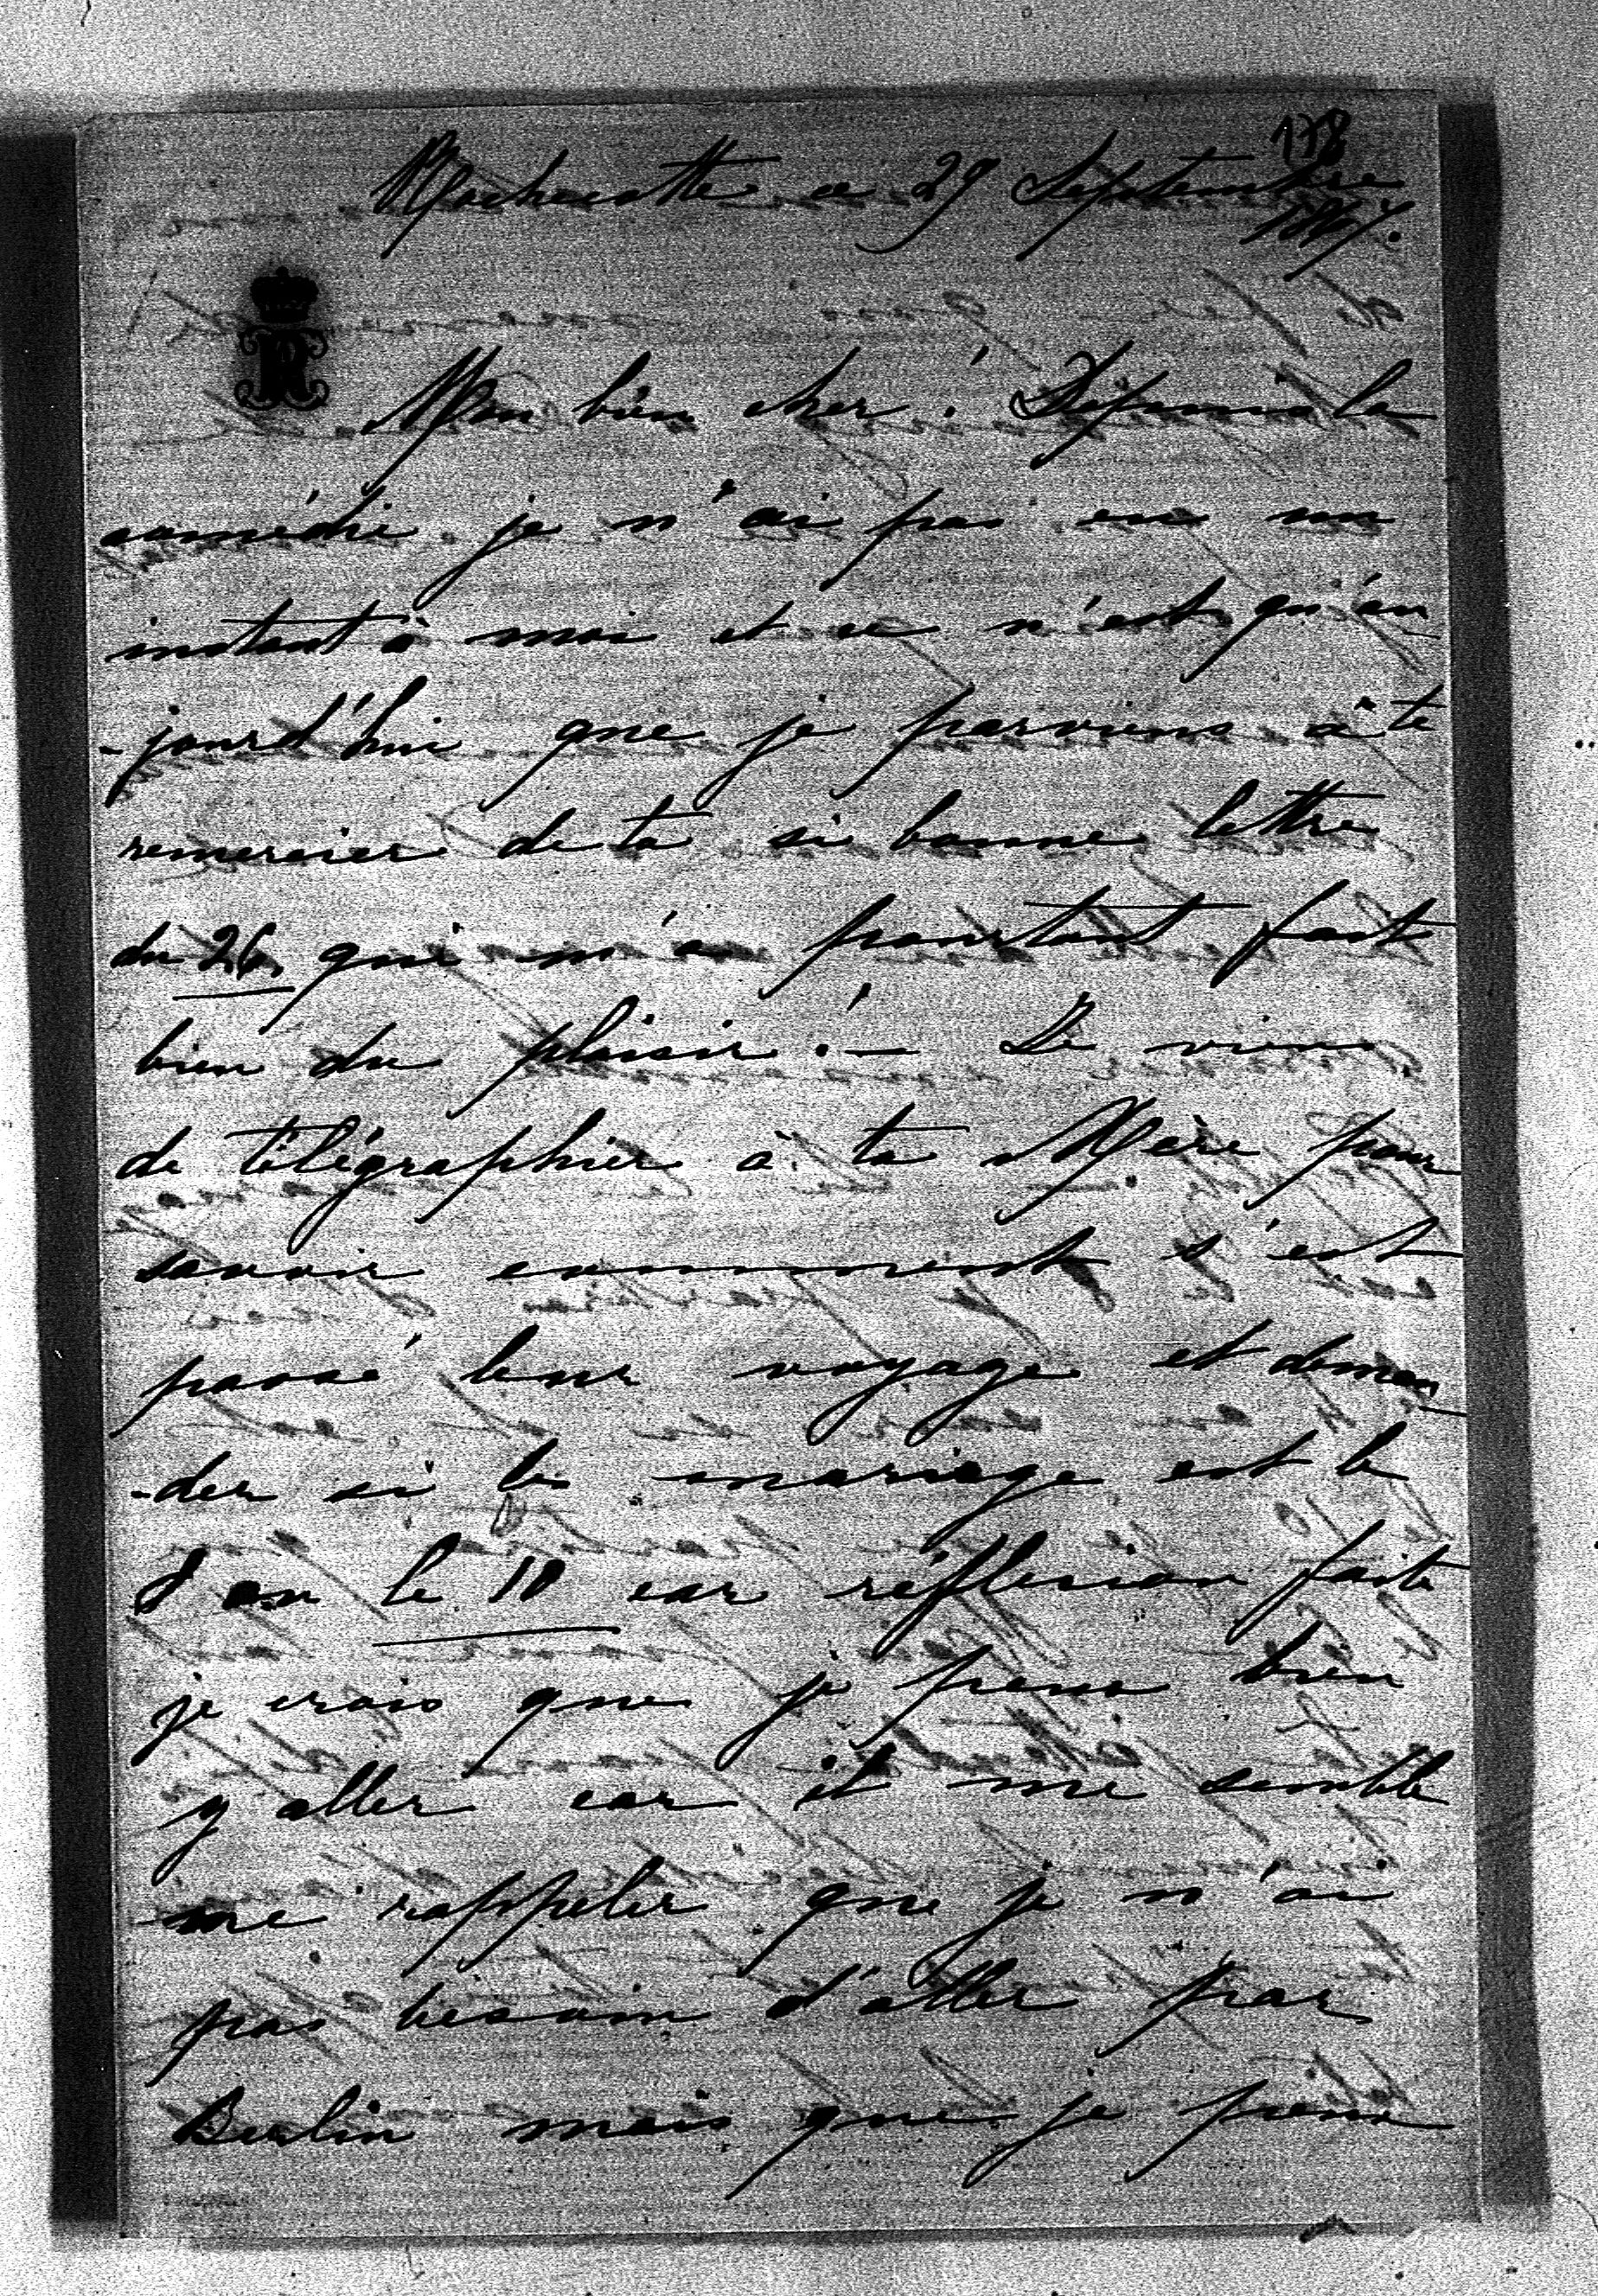 178
Rochecotte ce 29 Septembre
Mon bien cher! Depuis la
comédie je n'ai pas eu un
instant à moi et ce n'est qu'au
-jourd'hui que je parviens à te
remercier de ta si bonne lettre
du 26 qui m'a pourtant fait
bien du plaisir! — Je viens
de télégraphier à ta Mère pour
savoir comment s'est
passé leur voyage et deman
-der si le mariage est le
8 ou le 10 car réflexion faite
je crois que je peux bien
y aller car il me semble
me rappeler que je n'ai
pas besoin d'aller par
Berlin mais que je peux